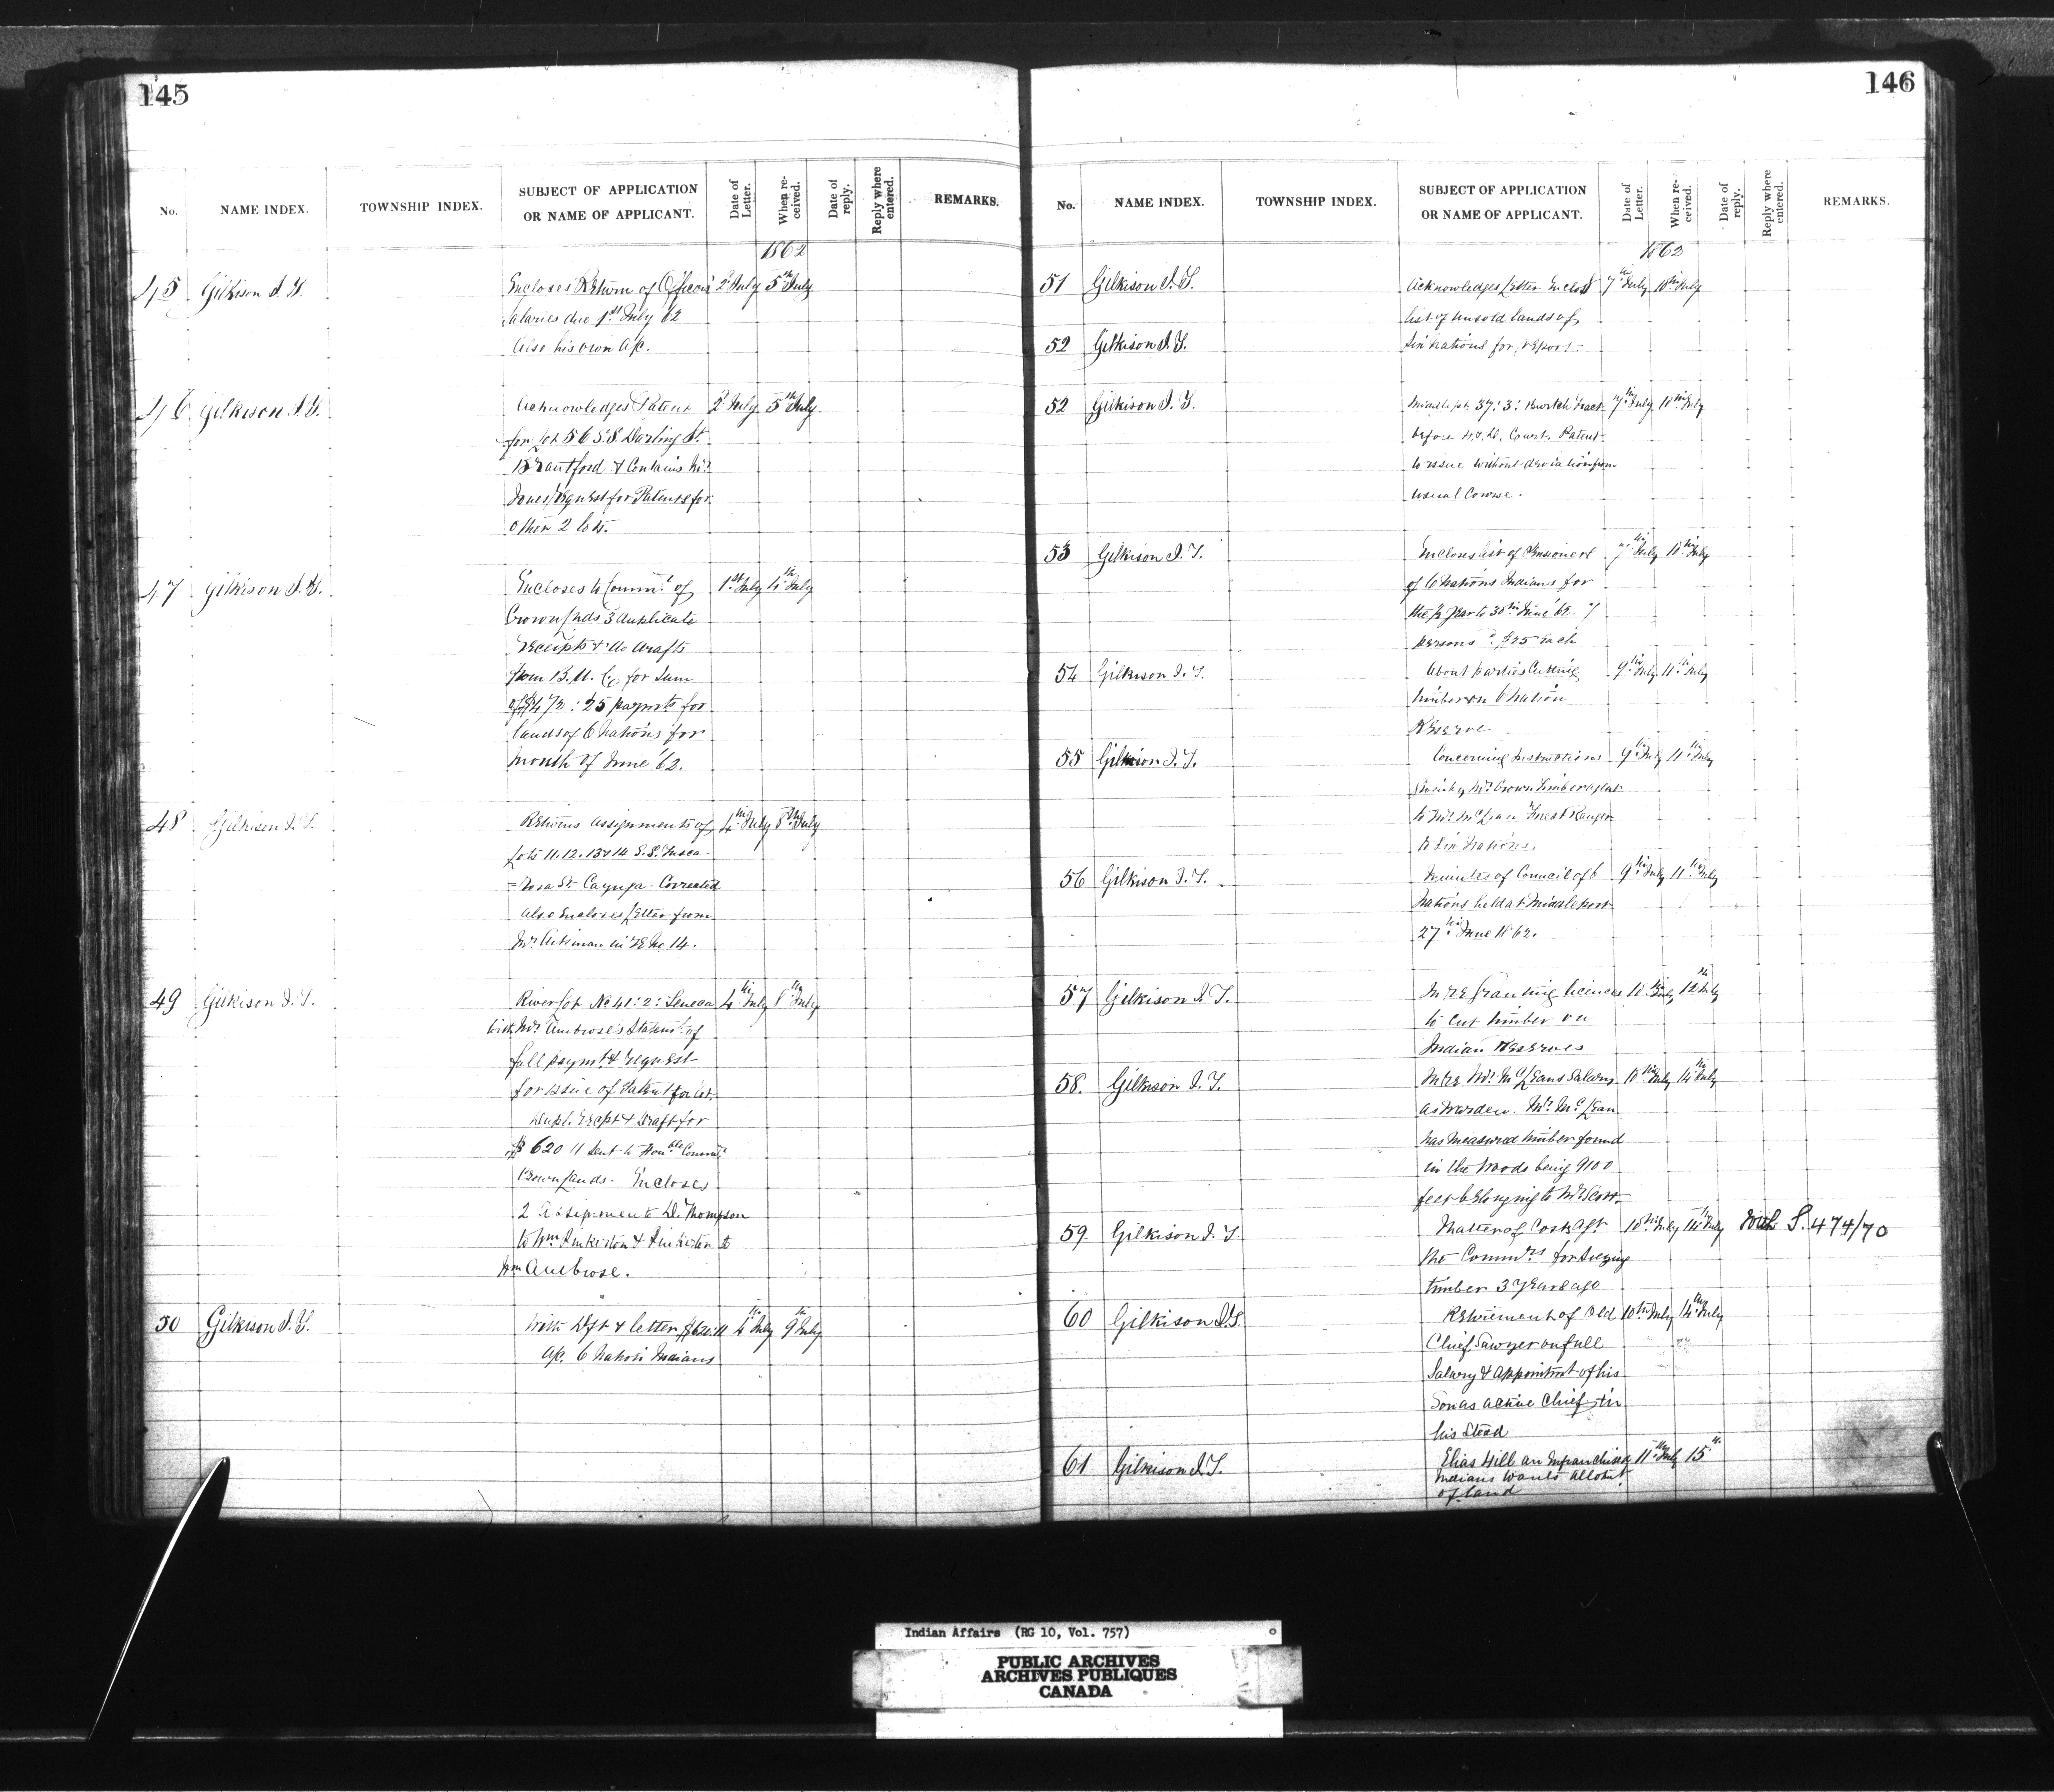 145
No. NAME INDEX. TOWNSHIP INDEX. SUBJECT OF APPLICATION OR NAME OF APPLICANT. Date of Letter. When re-ceived. Date of reply. Reply where entered. REMARKS.
1862
45 Gilkison J. T. Encloses Return of Officers 2 July 5th July
Salaries due 1st July 62
Also his own a/c.
46 Gilkison J. T. Acknowledges Patent 2 July 5th July
for Lot 56 S.S. Darling St.
Brantford & Contains Mr
Jones request for Patents for
other 2 lots.
47 Gilkison J. T. Encloses to Commr of 1st July 4th July
Crown Lnds 3 duplicate
Receipts & do drafts
from B.U.C. for Sum
of $472:25 paymts for
lands of 6 Nations for
month of June '62.
48 Gilkison J. T. Returns assignments of 4th July 8th July
Lots 11.12.13 & 14 S.S. Tusca-
=rora St. Cayuga - Corrected
Also Encloses Letter from
Mr Aikman in re No. 14.
49 Gilkison J. T. River Lot No 41:2: Seneca 4th July 8th July
with Mr Ambrose's Statemt of
full paymt & request
for issue of Patent for lot.
Dupl. Recpt & Draft for
$620 11 Sent to Honble Commr
Crown Lands. Encloses
2 Assignments D. Thompson
to Wm Pinkerton & Pinkerton to
Wm Ambrose.
50 Gilkison J. T. With Dft & letter $620:11 4th July 9th July
a/c. 6 Nation Indians
146
No. NAME INDEX. TOWNSHIP INDEX. SUBJECT OF APPLICATION OR NAME OF APPLICANT. Date of Letter. When re-ceived. Date of reply. Reply where entered. REMARKS.
1862
51 Gilkison J. T. Acknowledges Letter Enclosg 7th July 10th July
list of unsold lands of
52 Gilkison J. T. Six Nations for report.
52 Gilkison J. T. Middle pt. 37:3: Burtch Tract 7th July 10th July
before H. & D. Court. Patent
to issue without deviation from
usual Course.
53 Gilkison J. T. Encloses list of Pensioners 7th July 10th July
of 6 Nations Indians for
the ½ Year to 30th June '62. 7
persons @ $25 Each
54 Gilkison J. T. About parties Cutting 9th July 11th July
timber on 6 Nation
Reserve
55 Gilkison J. T. Concerning Instructions 9th July 11th July
given by Mr Brown timber agent
to Mr McLean Forest Ranger
to Six Nations.
56 Gilkison J. T. Minutes of Council of 6 9th July 11th July
Nations held at Middleport
27th June 1862.
57 Gilkison J. T. In re Granting licences 10th July 12th July
to Cut timber on
Indian Reserves
58. Gilkison J. T. In re Mr McLeans Salary 10th July 14th July
as Warden. Mr McLean
has measured timber found
in the Woods being 9100
feet belonging to Mr Scott
59 Gilkison J. T. Matter of Costs agt 10th July 14th July with S. 474/70
the Commrs for Seizing
timber 3 Years ago
60 Gilkison J. T. Retirement of Old 10th July 14th July
Chief Sawyer on full
Salary & Appointmt of his
Son as active Chief in
his Stead
61 Gilkison J. T. Elias Hill an Enfranchised 11th July 15th
Indians wants allotmt
of land
Indian Affairs (RG 10, Vol. 757)
PUBLIC ARCHIVES
ARCHIVES PUBLIQUES
CANADA